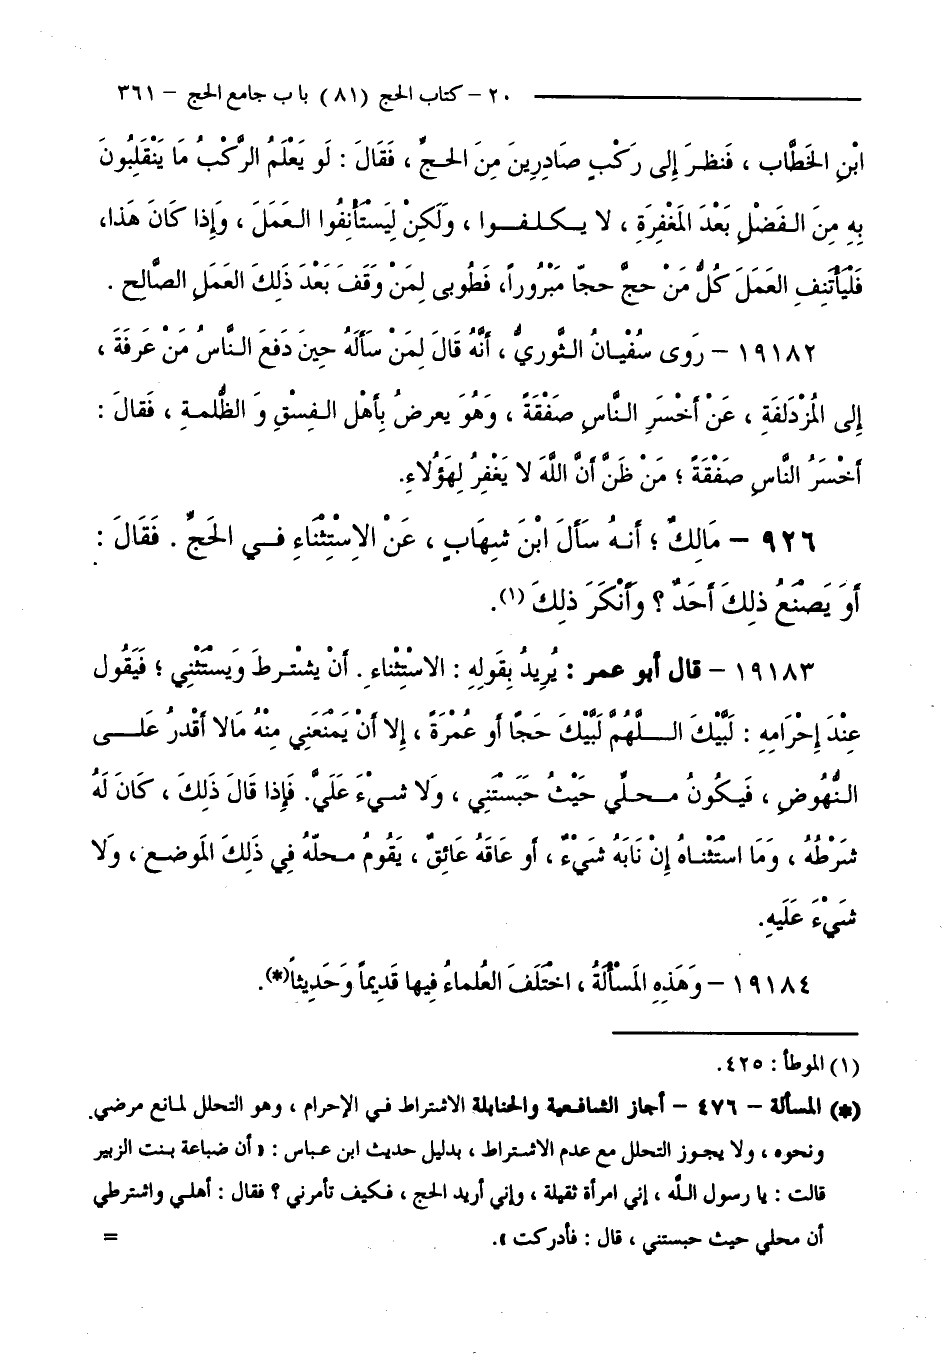 ٢٠ – كتاب الحج (٨١) باب جامع الحج – ٣٦١
ابْنِ الخَطَّاب ، فَنظرَ إِلى رَكْبٍ صَادِرِينَ مِنَ الحجِّ ، فَقَالَ : لَو يَعْلَمُ الرَّكْبُ مَا يَنْقَلِبُونَ
بِهِ مِنَ الفَضْلِ بَعْدَ المَغْفِرَةِ ، لا يكلفوا ، ولَكِنْ لِيَسْتَأْنِفُوا العَمَلَ ، وَإِذا كَانَ هَذا،
فَلْيَأْتَنِفِ العَمَلَ كُلُّ مَنْ حجَّ حجّا مَبْرُوراً، فَطُوبى لِمَنْ وَقَفَ بَعْدَ ذَلِكَ العَمَلِ الصَّالِحِ .
١٩١٨٢ – رَوى سُفْيانُ الثَّوريُّ ، أَنَّهُ قَالَ لِمَنْ سَأَلَهُ حِينَ دَفعَ النَّاسُ مَنْ عَرفَةَ ،
إِلى المُزْدَلفَةِ ، عَنْ أَخْسَرِ النَّاسِ صَفْقَةً ، وَهُوَ يعرضُ بِأَهْلِ الفِسْقِ وَ الظُّلمةِ ، فَقالَ :
أَخْسَرُ النَّاسِ صَفْقَةً ؛ مَنْ ظَنَّ أَنَّ اللَّهَ لا يَغْفِرُ لِهَؤُلَاءِ.
٩٢٦ – مَالِكٌ ؛ أَنهُ سَأَلَ ابْنَ شِهَابٍ ، عَنْ الاِسْتِثْنَاءِ فِي الحَجِّ . فَقَالَ :
أَوَ يَصْنَعُ ذلِكَ أَحَدٌ ؟ وَأَنْكَرَ ذلِكَ (١).
١٩١٨٣ – قال أبو عمر : يُرِيدُ بِقَولِهِ : الاسْتِثْناءِ . أَنْ يشْترطَ وَيستَثْنِي ؛ فَيَقُول
عِنْدَ إِحْرَامِهِ : لَبَّيْكَ اللَّهُمَّ لَبَّيْكَ حَجّا أَو عُمْرَةً ، إِلا أَنْ يَمْنَعَنِي مِنْهُ مَالا أَقْدرُ عَلى
النُّهُوضِ ، فَيكُونُ محلّي حَيْثُ حَبَسْتَنِي ، وَلا شيْءَ عَلَيَّ. فَإِذا قَالَ ذَلِكَ ، كَانَ لَهُ
شَرْطُهُ ، وَمَا اسْتَثْناهُ إِنْ نَابَهُ شَيْءٌ ، أَو عَاقَهُ عَائِقٌ ، يَقُومُ محلّهُ فِي ذَلِكَ المَوضعِ ، وَلا
شَيْءَ عَلَيهِ.
١٩١٨٤ – وَهَذِهِ المَسْأَلةُ ، اخْتَلَفَ العُلماءُ فِيها قَدِيماً وَحَدِيثاً(*).
(١) الموطأ : ٤٢٥.
(*) المسألة – ٤٧٦ – أجاز الشافعية والحنابلة الاشتراط في الإحرام ، وهو التحلل لمانع مرضي
ونحوه ، ولا يجوز التحلل مع عدم الاشتراط ، بدليل حديث ابن عباس : « أن ضباعة بنت الزبير
قالت : يا رسول اللَّه ، إني امرأة ثقيلة ، وإني أريد الحج ، فكيف تأمرني ؟ فقال : أهلي واشترطي
أن محلي حيث حبستني ، قال : فأدركت ».
=